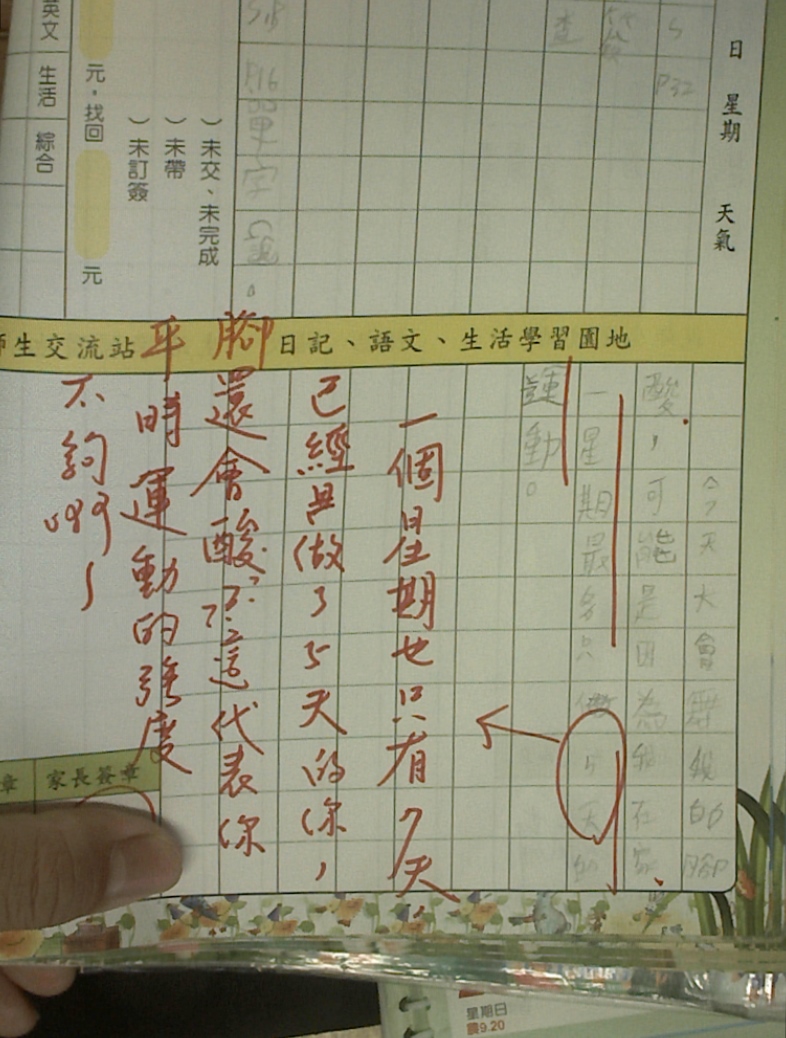 日 星期 天氣
S P32
查
單字
英文 生活 綜合
元，找回 元
( )未交、未完成
( )未帶
( )未訂簽
師生交流站
日記、語文、生活學習園地
今天大會舞跳的腳
酸，可能是因為我在家
一星期最多只做5天的
運動。
一個星期也只有7天，
已經是做了5天的你，
腳還會酸??這代表你
平時運動的強度
不夠啊!
章 家長簽章
星期日
農9.20